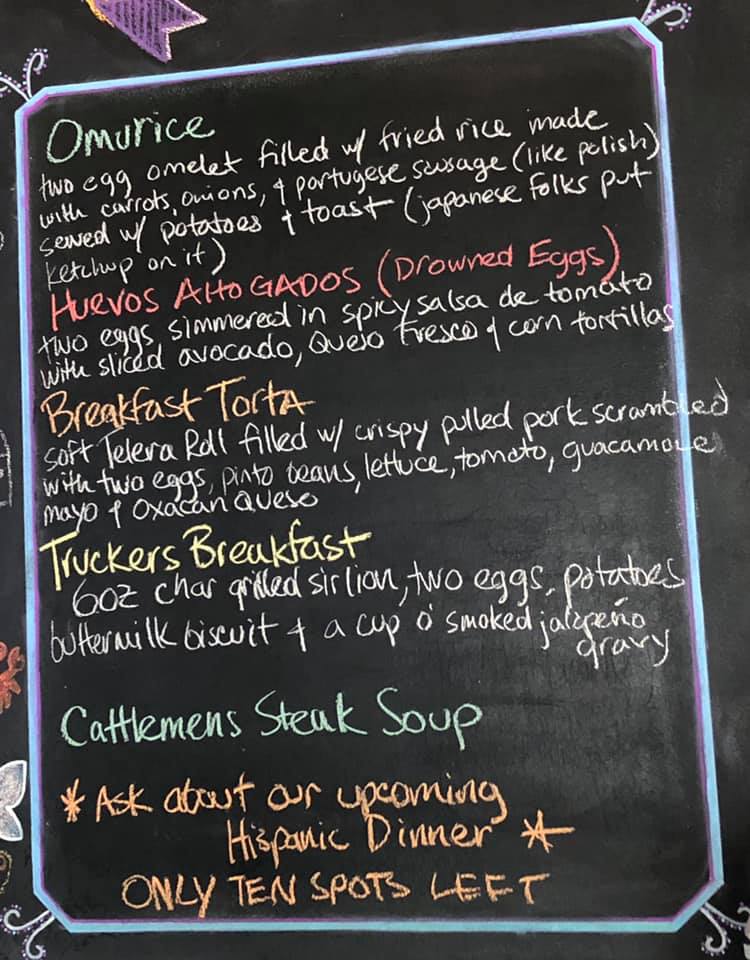 Omurice
two egg omelet filled w/ fried rice made
with carrots, onions, & portugese sausage (like polish)
served w/ potatoes & toast (japanese folks put
ketchup on it)
HUEVOS AHOGADOS (DROWNED EGGS)
two eggs simmered in spicy salsa de tomato
with sliced avocado, Queso Fresco & corn tortillas
Breakfast Torta
soft Telera Roll filled w/ crispy pulled pork scrambled
with two eggs, pinto beans, lettuce, tomato, guacamole
mayo & Oxacan Queso
Truckers Breakfast
6oz char grilled sirlion, two eggs, potatoes
buttermilk biscuit & a cup o' smoked jalapeño
gravy
Cattlemens Steak Soup
* Ask about our upcoming
Hispanic Dinner *
ONLY TEN SPOTS LEFT